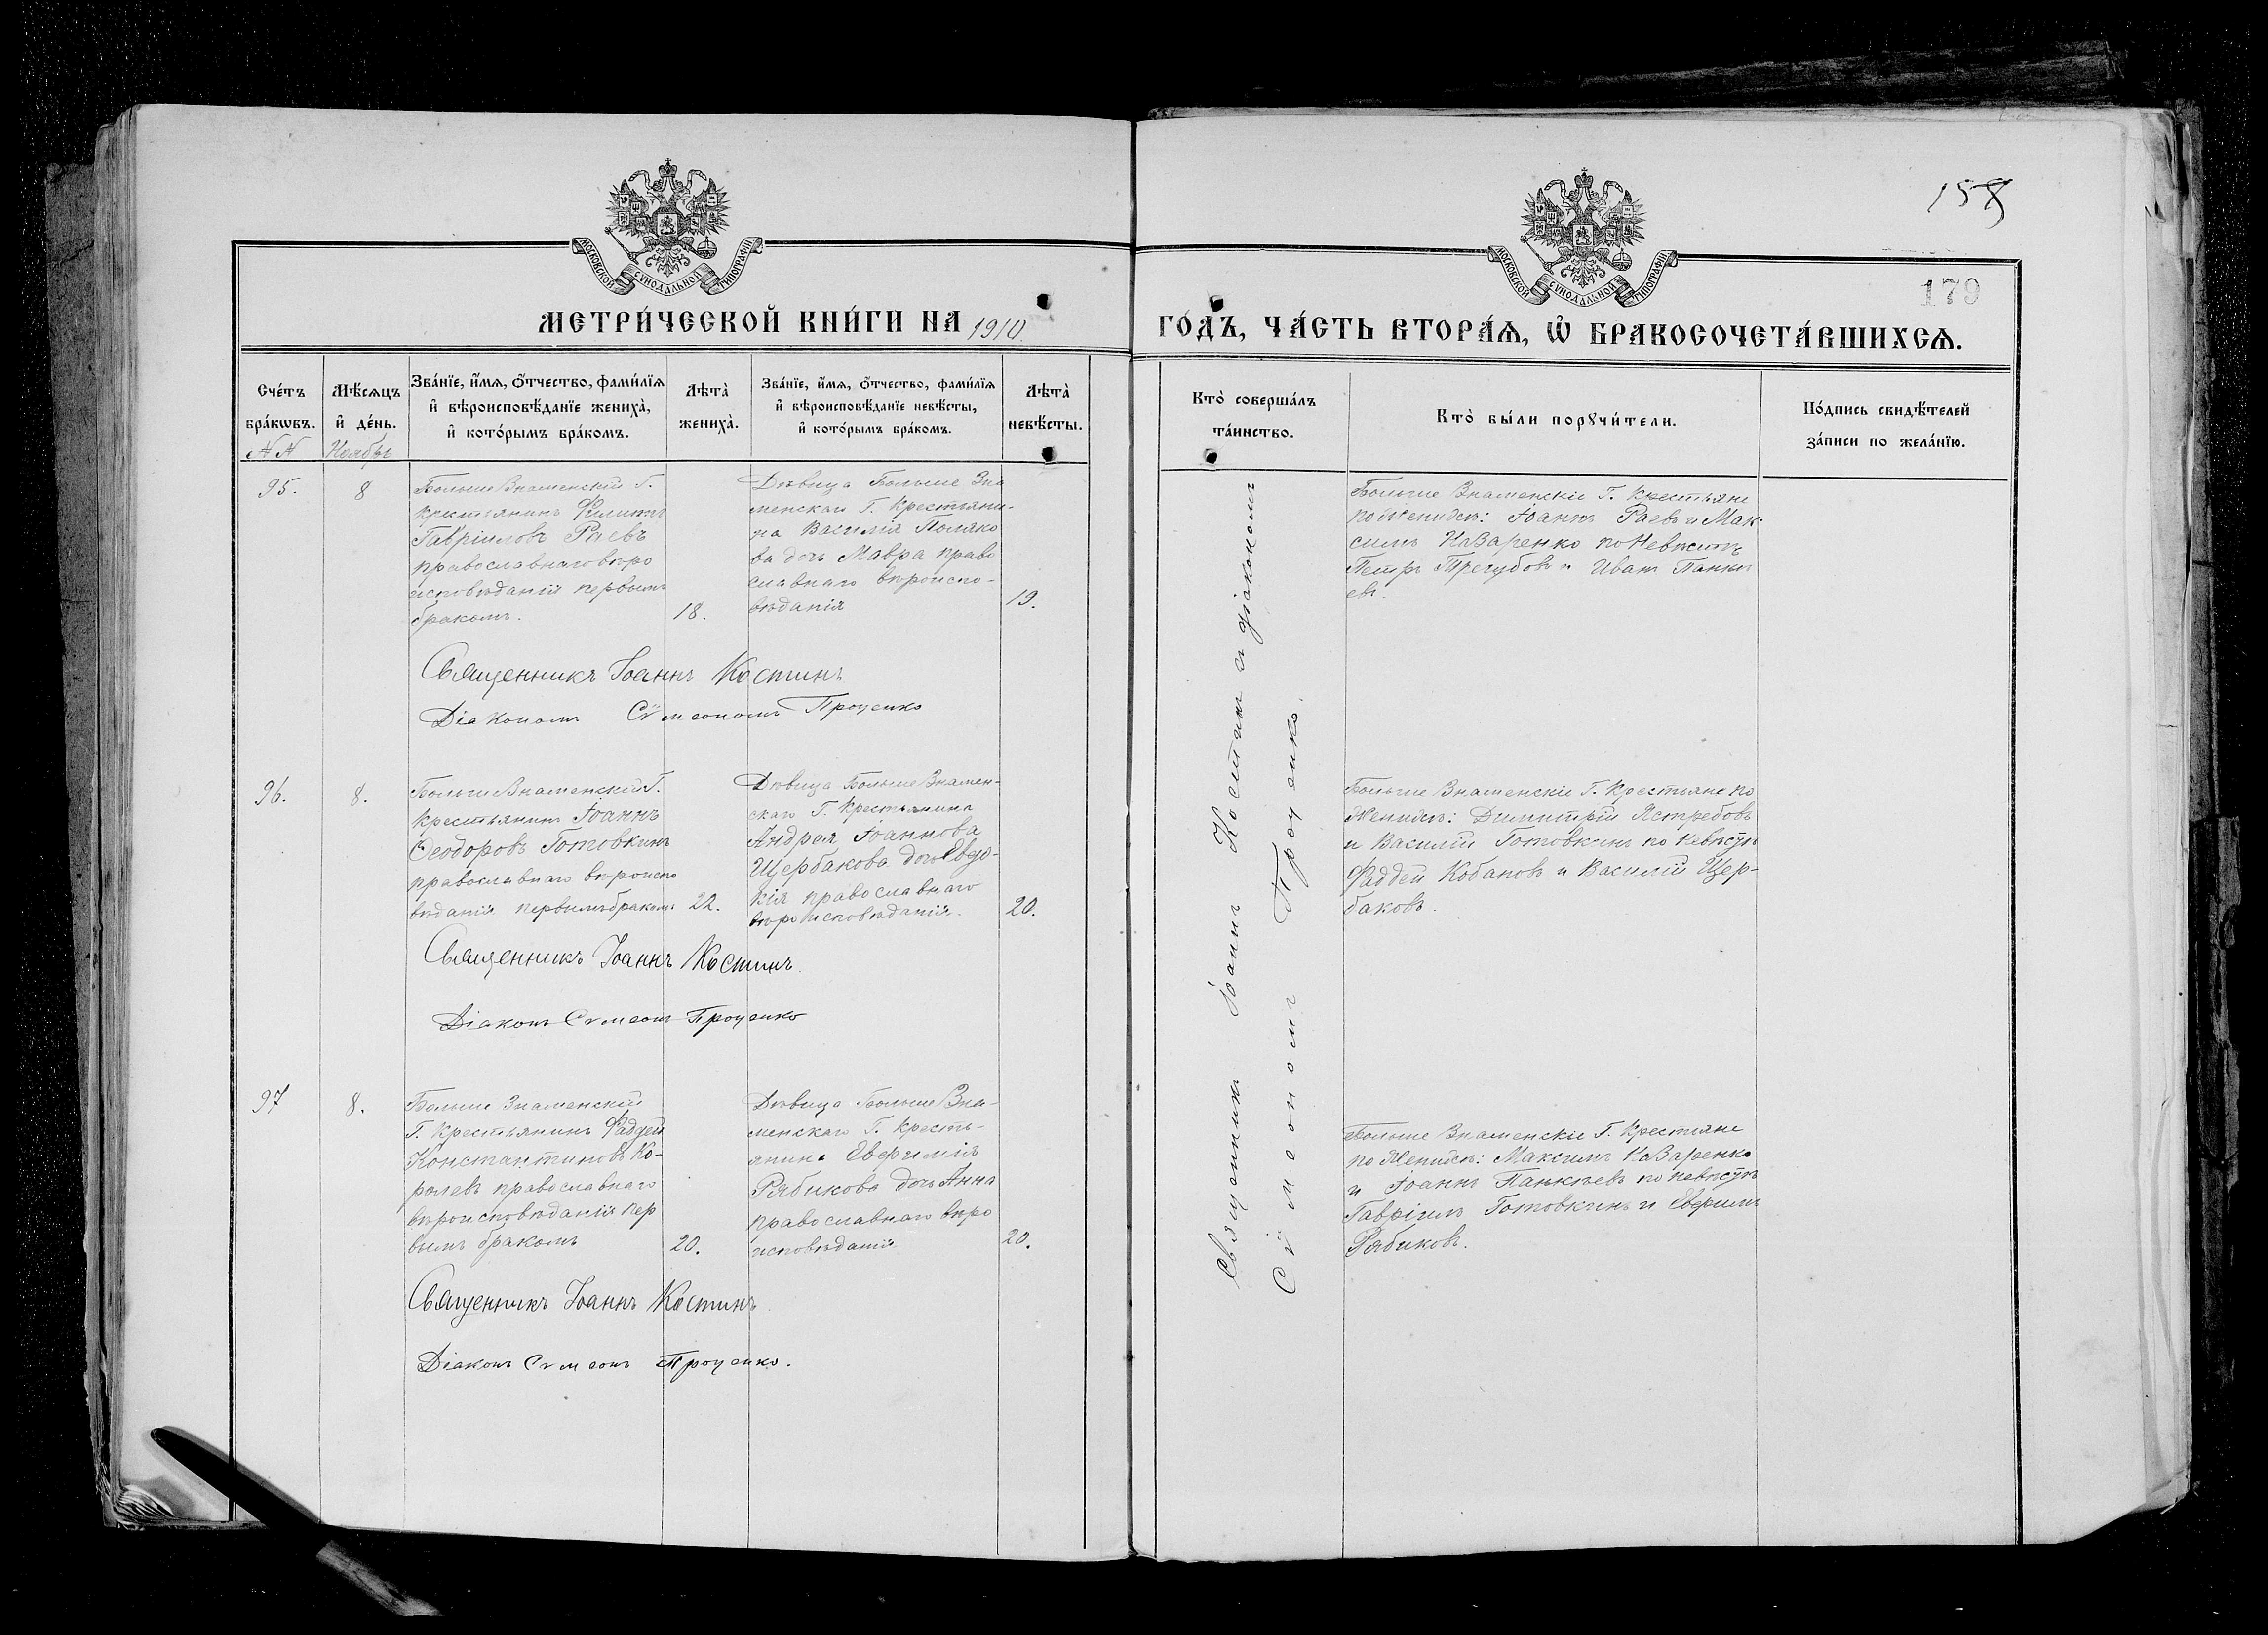 158
179
МОСКОВСКОЙ СѴНОДАЛЬНОЙ ТИПОГРАФІИ
МОСКОВСКОЙ СѴНОДАЛЬНОЙ ТИПОГРАФІИ
МЕТРИ́ЧЕСКОЙ КНИ́ГИ НА 1910
ГО́ДЪ, ЧА́СТЬ ВТОРА́Я, Ѿ БРАКОСОЧЕТА́ВШИХСЯ.
Сче́тъ бра́кωвъ.
Мѣ́сяцъ и҆ де́нь.
Зва́нїе, и҆́мя, ѻ҆́тчество, фами́лїя и҆ вѣроисповѣ́данїе жениха̀, и҆ кото́рымъ бра́комъ.
Лѣта̀ жениха̀.
Зва́нїе, и҆́мя, ѻ҆́тчество, фами́лїя и҆ вѣроисповѣ́данїе невѣ́сты, и҆ кото́рымъ бра́комъ.
Лѣта̀ невѣ́сты.
Кто̀ соверша́лъ та́инство.
Кто̀ бы́ли порꙋчи́тели.
По́дпись свидѣ́телей за́писи по жела́нїю.
NN
Ноябрь
95.
8
Больше Знаменскій Г.
крестьянинъ Филиппъ
Гавріиловъ Раевъ
православнаго вѣро
исповѣданія первымъ
бракомъ.
18.
Дѣвица Больше Зна
менскаго Г. Крестьяни-
на Василія Поляко
ва дочь Мавра право
славнаго вѣроиспо-
вѣданія
19.
Больше Знаменскіе Г. Крестьяне
по Женихѣ: Іоаннъ Раевъ и Мак-
симъ Назаренко по Невѣстѣ
Петръ Трегубовъ и Иванъ Панкѣ
евъ.
Священникъ Іоаннъ Костинъ
Діакономъ Сѵмеономъ Проценко
96.
8.
Больше Знаменскій Г.
крестьянинъ Іоаннъ
Ѳеодоровъ Готовкинъ
православнаго вѣроиспо
вѣданія первымъ бракомъ
22.
Дѣвица Больше Знамен-
скаго Г. Крестьянина
Андрея Іоаннова
Щербакова дочь Евдо-
кія православнаго
вѣроисповѣданія.
20.
Больше Знаменскіе Г. Крестьяне по
Женихѣ: Димитрій Ястребовъ
и Василій Готовкинъ по невѣстѣ
Фаддей Кобановъ и Василій Щер-
баковъ.
Священникъ Іоаннъ Костинъ.
Діаконъ Сѵмеонъ Проценко
97
8.
Больше Знаменскій
Г. Крестьянинъ Фаддей
Константиновъ Ко-
ролевъ православнаго
вѣроисповѣданія пер
вымъ бракомъ
20.
Дѣвица Больше Зна-
менскаго Г. Кресть-
янина Евфимія
Рябикова дочь Анна
православнаго вѣро
исповѣданія
20.
Больше Знаменскіе Г. Крестьяне
по Женихѣ: Максимъ Назаренко
и Іоаннъ Панкѣевъ по невѣстѣ
Гавріилъ Готовкинъ и Евфимъ
Рябиковъ.
Священникъ Іоаннъ Костинъ
Діаконъ Сѵмеонъ Проценко.
Священникъ Іоаннъ Костинъ съ діакономъ
Сѵмеономъ Проценко.